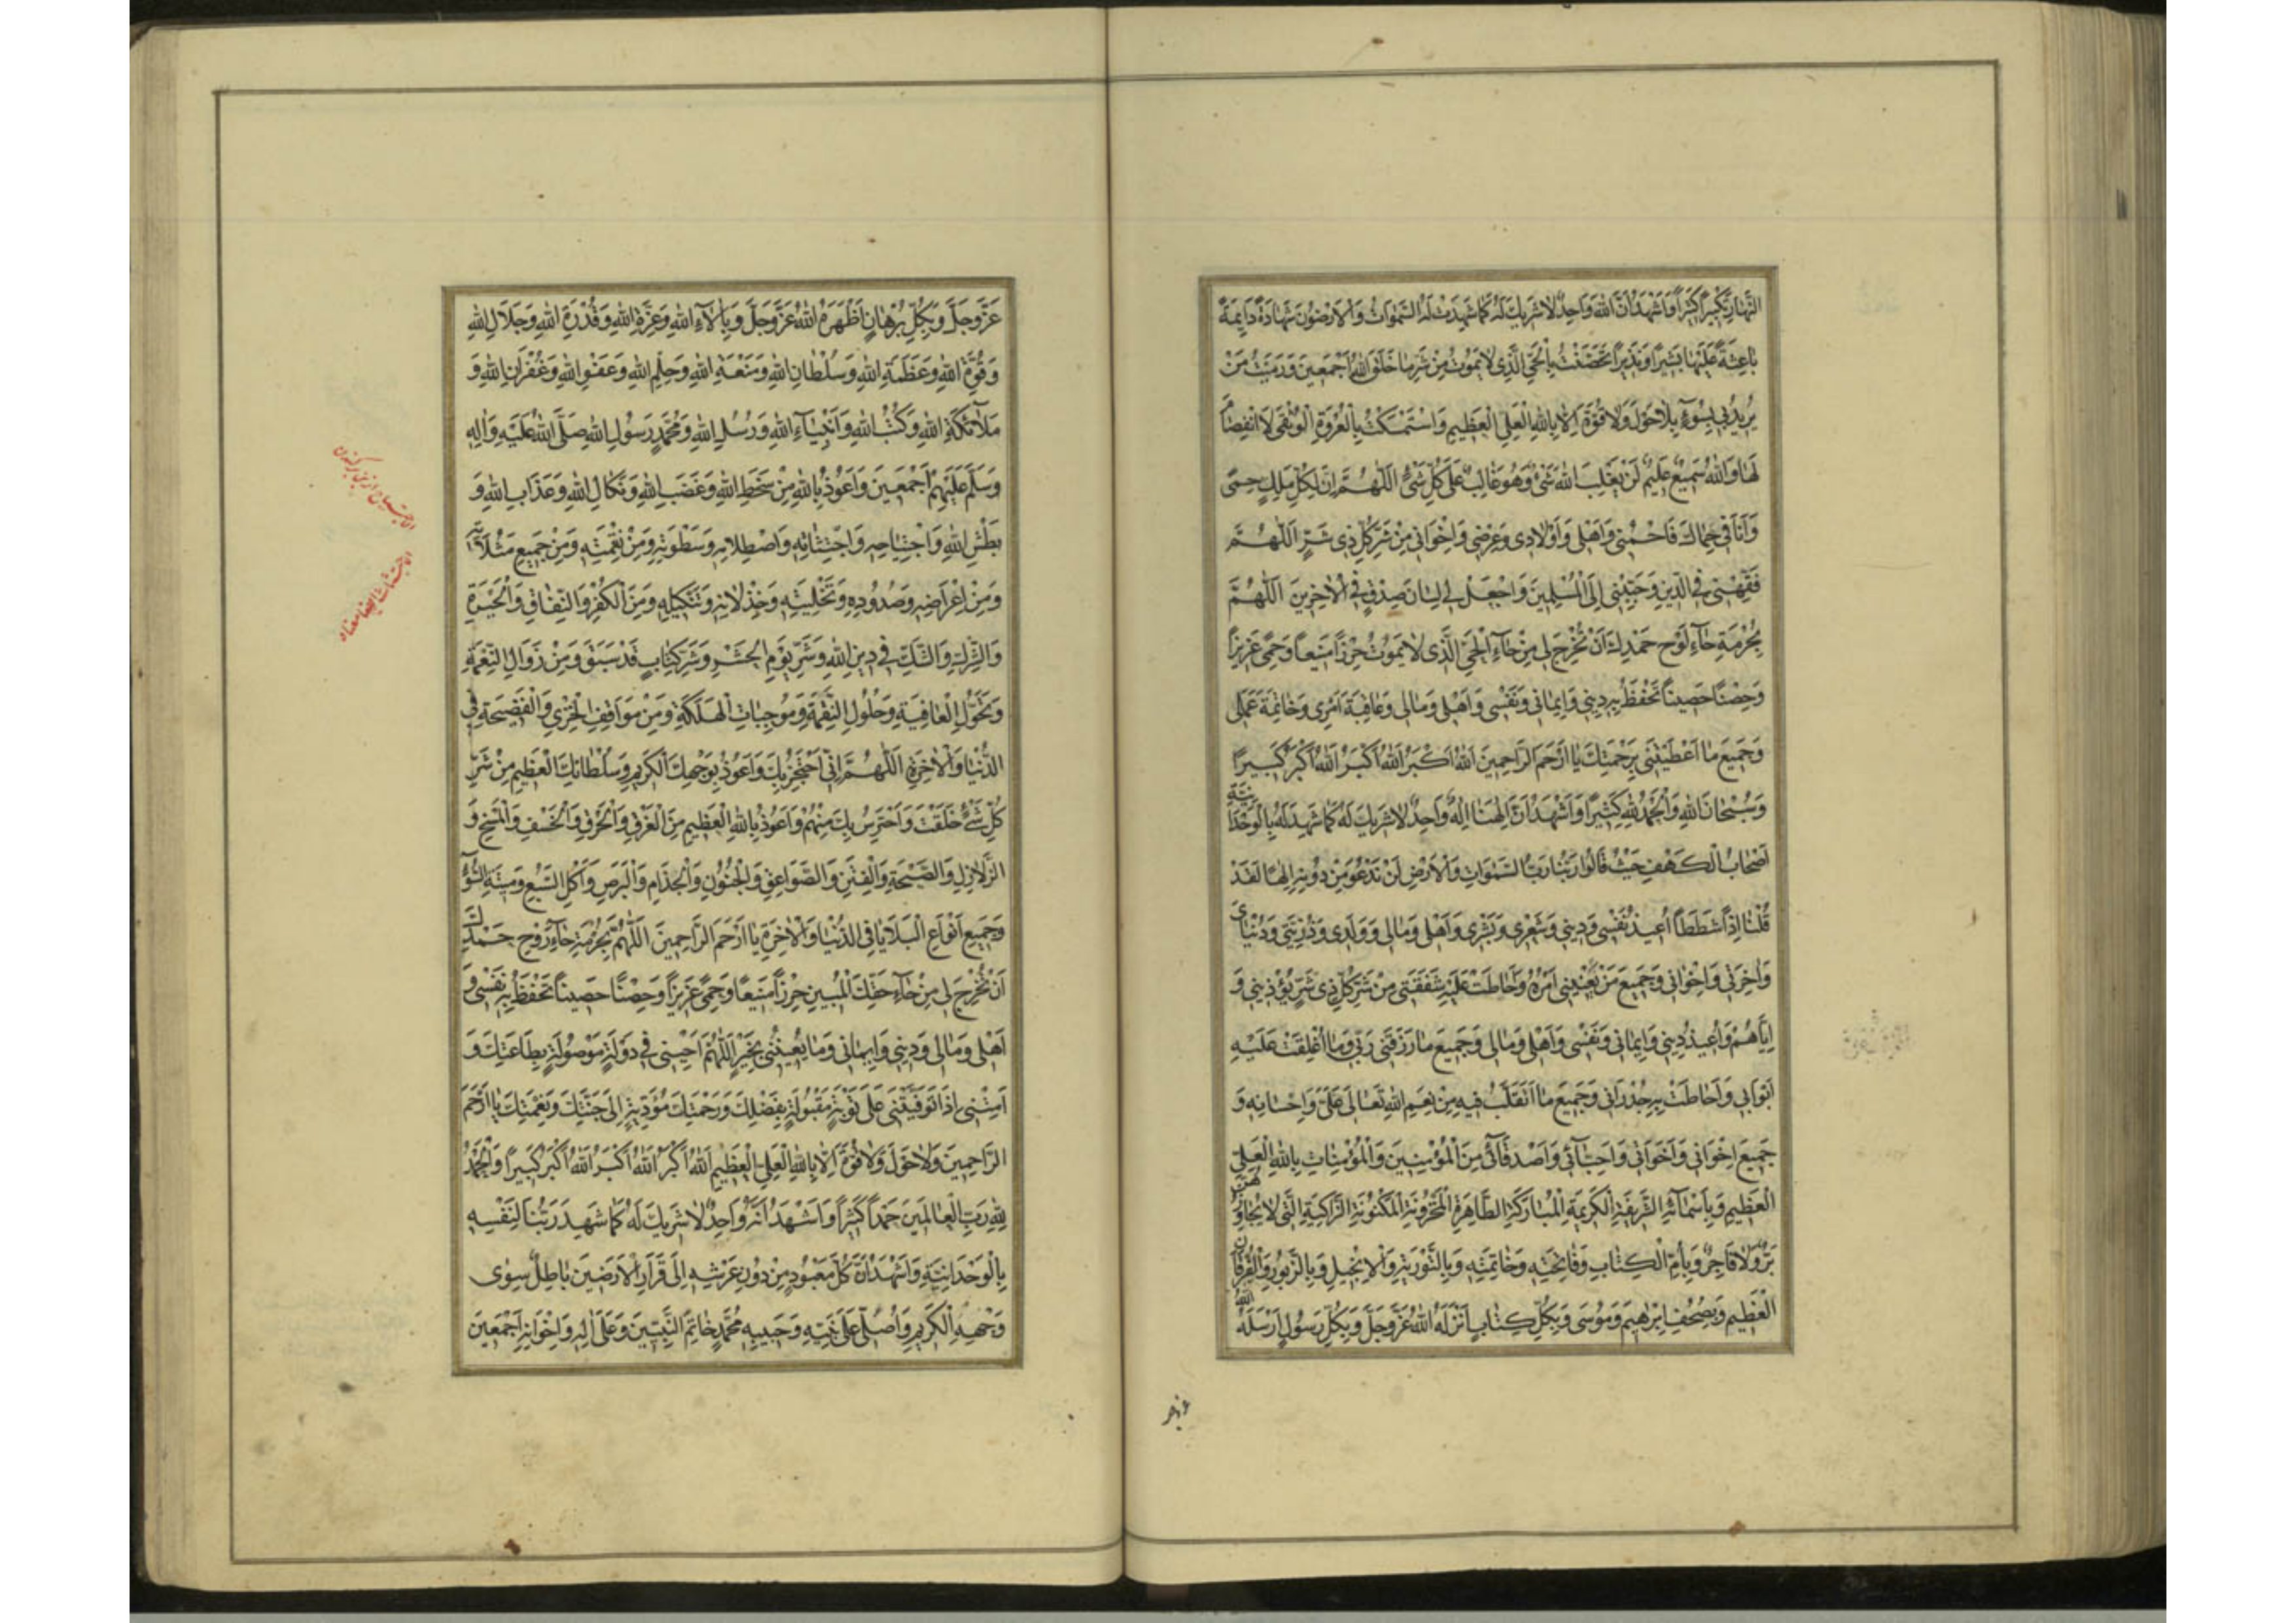 النَّهارِ تَكْبيراً كَثيراً وَاَشْهَدُ اَنَّ اللهَ وَاحِدٌ لا شَريكَ لَهُ كَما شَهِدَتْ لَهُ السَّمٰواتُ وَالاَرَضُونَ شَهادَةً دايِمَةً
بَشيراً وَنَذيراً تَحَصَّنْتُ بِالْحَيِّ الَّذى لا يَمُوتُ مِنْ شَرِّ ما خَلَقَ اللهُ اَجْمَعينَ وَرَمَيْتُ مَنْ
يُريدُ بى بِسُوءٍ بِلا حَوْلَ وَلا قُوَّةَ اِلّا بِاللهِ الْعَلِىِّ الْعَظيمِ وَاسْتَمْسَكْتُ بِالْعُرْوَةِ الْوُثْقى لَا انْفِصامَ
لَها وَاللهُ سَميعٌ عَليمٌ لَنْ يَغْلِبَ اللهَ شَىْءٌ وَهُوَ غالِبٌ عَلى كُلِّ شَىْءٍ اَللّٰهُمَّ اِنَّ لِكُلِّ مَلِكٍ حِمىً
وَاَنَا فى حِماكَ فَاحْمِنى وَاَهْلى وَاَوْلادى وَعِرْضى وَاِخْوانى مِنْ شَرِّ كُلِّ ذى شَرٍّ اَللّٰهُمَّ
فَقِّهْنى فِى الدّينِ وَحَبِّبْنى اِلَى الْمُسْلِمينَ وَاجْعَلْ لى لِسانَ صِدْقٍ فِى الْاٰخِرينَ اَللّٰهُمَّ
بِحُرْمَةِ حاءِ لَوْحِ حَمْدِكَ اَنْ تُخْرِجَ لى مِنْ حاءِ الْحَيِّ الَّذى لا يَمُوتُ حِرْزاً مَنيعاً وَحِمىً عَزيزاً
وَحِصْناً حَصيناً تَحْفَظُ بِهِ دينى وَايمانى وَنَفْسى وَاَهْلى وَمالى وَعاقِبَةَ اَمْرى وَخاتِمَةَ عَمَلى
وَجَميعَ ما اَعْطَيْتَنى بِرَحْمَتِكَ يا اَرْحَمَ الرّاحِمينَ اَللهُ اَكْبَرُ اَللهُ اَكْبَرُ اَللهُ اَكْبَرُ كَبيراً
وَسُبْحانَ اللهِ وَالْحَمْدُ لِلّهِ كَثيراً وَاَشْهَدُ اَنَّ اِلٰهَنا اِلٰهٌ وَاحِدٌ لا شَريكَ لَهُ كَما شَهِدَ لَهُ بِالْوَحْدانِيَّةِ
اَصْحابُ الْكَهْفِ حَيْثُ قالُوا رَبُّنا رَبُّ السَّمٰواتِ وَالْاَرْضِ لَنْ نَدْعُوَ مِنْ دُونِهِ اِلٰهاً لَقَدْ
قُلْنا اِذاً شَطَطاً اُعيذُ نَفْسى وَدينى وَشَعْرى وَبَشَرى وَاَهْلى وَمالى وَوَلَدى وَذُرِّيَّتى وَدُنْياىَ
وَاٰخِرَتى وَاِخْوانى وَجَميعَ مَنْ يَعْنينى اَمْرُهُ وَاَحاطَتْ عَلَيْهِ شَفَقَتى مِنْ شَرِّ كُلِّ ذى شَرٍّ يُؤْذينى وَ
اِيّاهُمْ وَاُعيذُ دينى وَايمانى وَنَفْسى وَاَهْلى وَمالى وَجَميعَ ما رَزَقَنى رَبّى وَما اُغْلِقَتْ عَلَيْهِ
اَبْوابى وَاَحاطَتْ بِهِ جُدْرانى وَجَميعَ ما اَتَقَلَّبُ فيهِ مِنْ نِعَمِ اللهِ تَعالى عَلَىَّ وَاِحْسانِهِ وَ
جَميعَ اِخْوانى وَاَخَواتى وَاَحِبّائى وَاَصْدِقائى مِنَ الْمُؤْمِنينَ وَالْمُؤْمِناتِ بِاللهِ الْعَلِىِّ
الْعَظيمِ وَبِاَسْمائِهِ الشَّريفَةِ الْكَريمَةِ الْمُبارَكَةِ الطّاهِرَةِ الْمَخْزُونَةِ الْمَكْنُونَةِ الزّاكِيَةِ الَّتى لا يُجاوِزُهُنَّ
بَرٌّ وَلا فاجِرٌ وَبِاُمِّ الْكِتابِ وَفاتِحَتِهِ وَخاتِمَتِهِ وَبِالتَّوْرٰيةِ وَالْاِنْجيلِ وَبِالزَّبُورِ وَالْفُرْقانِ
الْعَظيمِ وَبِصُحُفِ اِبْرٰهيمَ وَمُوسى وَبِكُلِّ كِتابٍ اَنْزَلَهُ اللهُ عَزَّ وَجَلَّ وَبِكُلِّ رَسُولٍ اَرْسَلَهُ اللهُ
عَزَّ وَجَلَّ وَبِكُلِّ بُرْهانٍ اَظْهَرَهُ اللهُ عَزَّ وَجَلَّ وَبِاٰلاءِ اللهِ وَعِزَّةِ اللهِ وَقُدْرَةِ اللهِ وَجَلالِ اللهِ
وَقُوَّةِ اللهِ وَعَظَمَةِ اللهِ وَسُلْطانِ اللهِ وَمَنَعَةِ اللهِ وَحِلْمِ اللهِ وَعَفْوِ اللهِ وَغُفْرانِ اللهِ وَ
مَلاٰئِكَةِ اللهِ وَكُتُبِ اللهِ وَاَنْبِياءِ اللهِ وَرُسُلِ اللهِ وَمُحَمَّدٍ رَسُولِ اللهِ صَلَّى اللهُ عَلَيْهِ وَاٰلِهِ
وَسَلَّمَ عَلَيْهِمْ اَجْمَعينَ وَاَعُوذُ بِاللهِ مِنْ سَخَطِ اللهِ وَغَضَبِ اللهِ وَنَكالِ اللهِ وَعَذابِ اللهِ وَ
بَطْشِ اللهِ وَاجْتِياحِهِ وَاجْتِثاثِهِ وَاصْطِلامِهِ وَسَطْوَتِهِ وَمِنْ نِقْمَتِهِ وَمِنْ جَميعِ مَثُلاتِهِ
وَمِنْ اِعْراضِهِ وَصُدُودِهِ وَتَخْلِيَتِهِ وَخِذْلانِهِ وَتَنْكيلِهِ وَمِنَ الْكُفْرِ وَالنِّفاقِ وَالْحَيْرَةِ
وَالشِّرْكِ وَالشَّكِّ فى دينِ اللهِ وَشَرِّ يَوْمِ الْحَشْرِ وَشَرِّ كِتابٍ قَدْ سَبَقَ وَمِنْ زَوالِ النِّعْمَةِ
وَتَحَوُّلِ الْعافِيَةِ وَحُلُولِ النِّقْمَةِ وَمُوجِباتِ الْهَلَكَةِ وَمِنْ مَواقِفِ الْخِزْىِ وَالْفَضيحَةِ فِى
الدُّنْيا وَالْاٰخِرَةِ اَللّٰهُمَّ اِنّى اَحْتَجِزُ بِكَ وَاَعُوذُ بِوَجْهِكَ الْكَريمِ وَسُلْطانِكَ الْعَظيمِ مِنْ شَرِّ
كُلِّ شَىْءٍ خَلَقْتَ وَاَحْتَرِسُ بِكَ مِنْهُمْ وَاَعُوذُ بِاللهِ الْعَظيمِ مِنَ الْغَرَقِ وَالْحَرَقِ وَالْخَسْفِ وَالْمَسْخِ وَ
الزَّلازِلِ وَالصَّيْحَةِ وَالْفِتَنِ وَالصَّواعِقِ وَالْجُنُونِ وَالْجُذامِ وَالْبَرَصِ وَاَكْلِ السَّبُعِ وَميتَةِ السُّوءِ
وَجَميعِ اَنْواعِ الْبَلايا فِى الدُّنْيا وَالْاٰخِرَةِ يا اَرْحَمَ الرّاحِمينَ اَللّٰهُمَّ بِحُرْمَةِ حاءِ رُوحِ حَمْدِكَ
اَنْ تُخْرِجَ لى مِنْ حاءِ حَقِّكَ الْمُبينِ حِرْزاً مَنيعاً وَحِمىً عَزيزاً وَحِصْناً حَصيناً تَحْفَظُ بِهِ نَفْسى وَ
اَهْلى وَمالى وَدينى وَايمانى وَما يَعْنينى بِخَيْرٍ اَللّٰهُمَّ اَحْيِنى فى دَوْلَةٍ مَوْصُولَةٍ بِطاعَتِكَ وَ
اَمِتْنى اِذا تَوَفَّيْتَنى عَلى تَوْبَةٍ مَقْبُولَةٍ بِفَضْلِكَ وَرَحْمَتِكَ مُؤَدِّيَةٍ اِلى جَنَّتِكَ وَنِعْمَتِكَ يا اَرْحَمَ
الرّاحِمينَ وَلا حَوْلَ وَلا قُوَّةَ اِلّا بِاللهِ الْعَلِىِّ الْعَظيمِ اَللهُ اَكْبَرُ اَللهُ اَكْبَرُ اَللهُ اَكْبَرُ كَبيراً وَالْحَمْدُ
لِلّهِ رَبِّ الْعالَمينَ حَمْداً كَثيراً وَاَشْهَدُ اَنَّهُ وَاحِدٌ لا شَريكَ لَهُ كَما شَهِدَ رَبُّنا لِنَفْسِهِ
بِالْوَحْدانِيَّةِ وَاَشْهَدُ اَنَّ كُلَّ مَعْبُودٍ مِنْ دُونِ عَرْشِهِ اِلى قَرارِ الْاَرَضينَ باطِلٌ سِوى
وَجْهِهِ الْكَريمِ وَاُصَلّى عَلى نَبِيِّهِ وَحَبيبِهِ مُحَمَّدٍ خاتَمِ النَّبِيّينَ وَعَلى اٰلِهِ وَاِخْوانِهِ اَجْمَعينَ